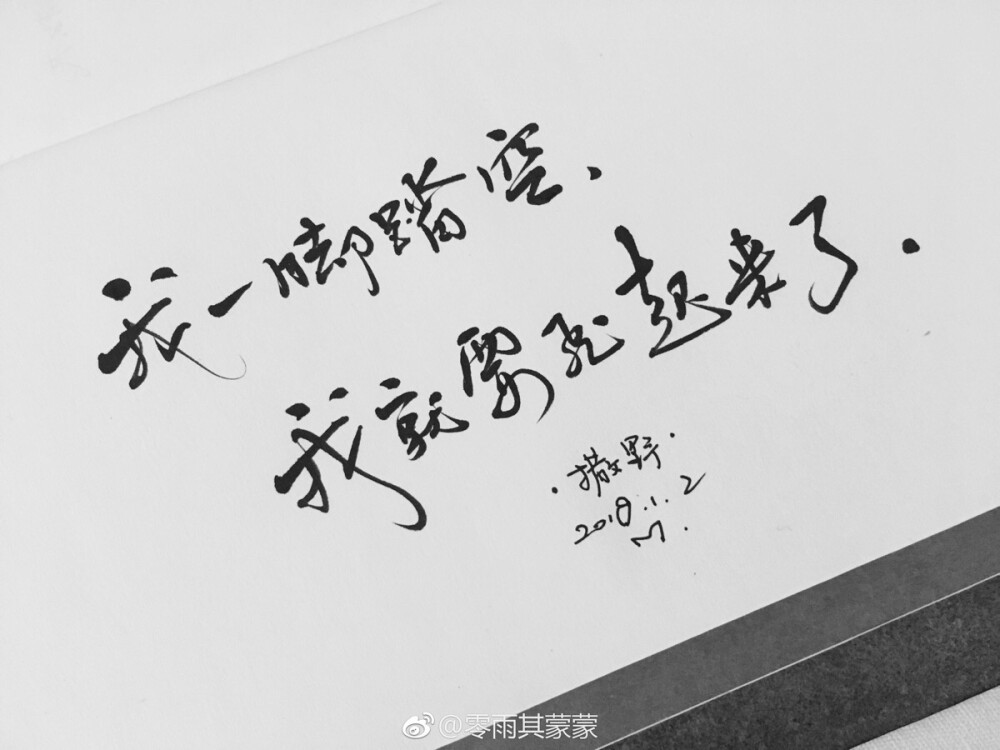 我一脚踏空、
我就要飞起来了.
·撒野·
2018.1.2
M.
@零雨其蒙蒙